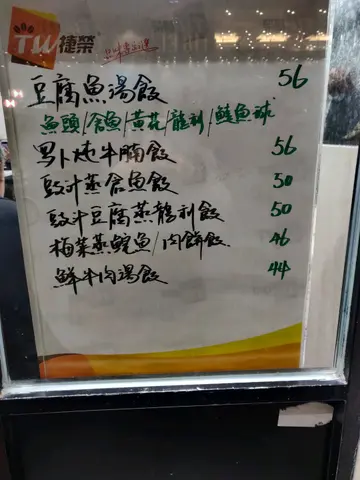 TW捷榮
豆腐魚湯飯 56
魚頭/倉魚/黄花/龍利/鯇魚球
罗卜炖牛腩飯 56
豉汁蒸倉魚飯 50
豉汁豆腐蒸龍利飯 50
梅菜蒸鯇魚/肉餅飯 46
鮮牛肉湯飯 44